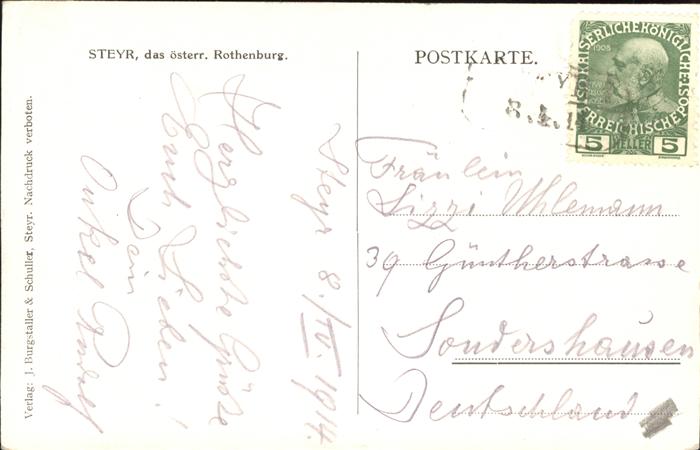 STEYR, das österr. Rothenburg.
POSTKARTE.
1908
KAISERLICHE KÖNIGLICHE
ÖSTERREICHISCHE POST
5 HELLER 5
8.
Steyr 8./IV. 1914.
Herzlichste Grüsse
Euch Lieben!
Dein
Onkel
Fräulein
Lizzi Uhlemann
39 Güntherstrasse
Sondershausen
Deutschland
Verlag: J. Burgstaller & Schuller, Steyr. Nachdruck verboten.